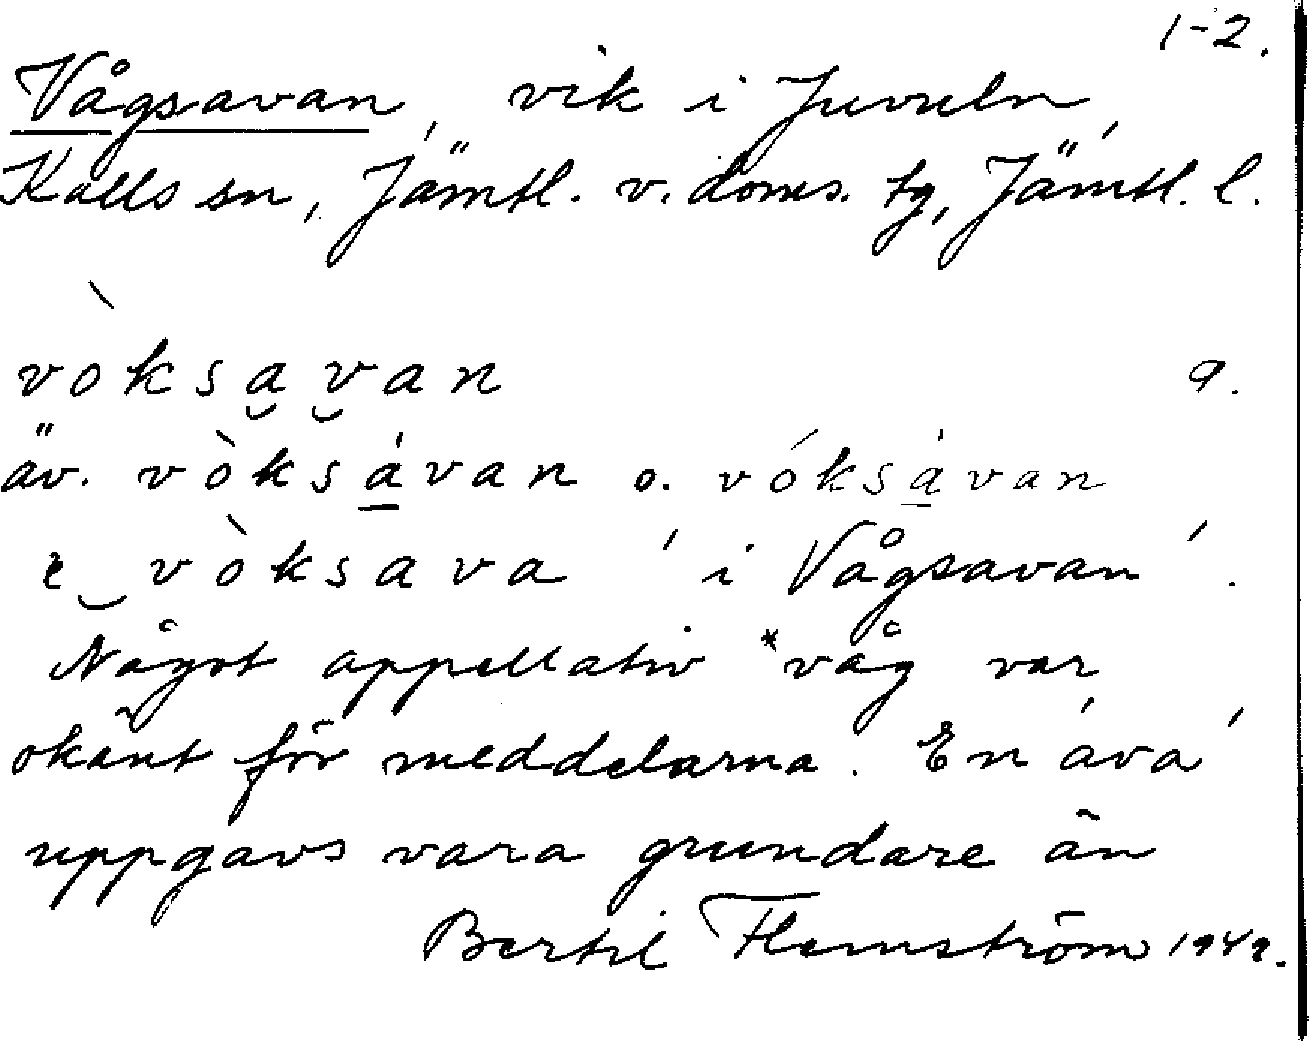 1-2.
Vågsavan, vik i Juvuln,
Kalls sn, Jämtl. v. doms. tg, Jämtl. l.
vòksavan 9.
äv. vòksávan o. vóksávan
vòksava 'i Vågsavan'.
Något appellativ *våg var
okänt för meddelarna. En 'ava'
uppgavs vara grundare än
Bertil Flemström 1949.